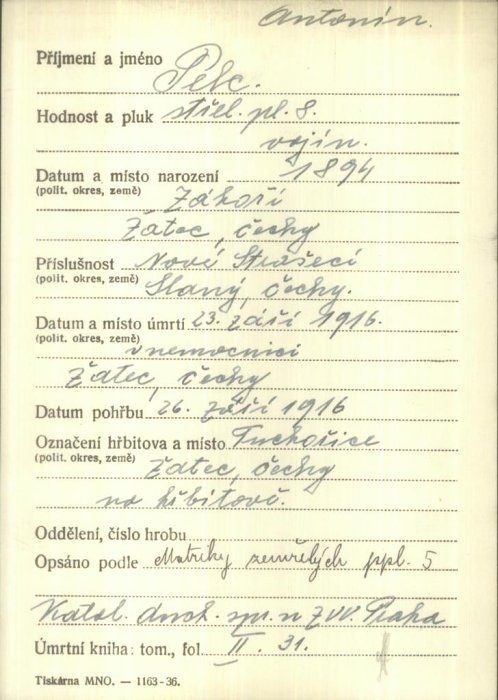 Antonín.
Příjmení a jméno Pelc.
Hodnost a pluk střel. pl. 8.
vojín.
Datum a místo narození 1894
(polit. okres, země) Záhoří
Žatec, čechy
Příslušnost Nové Strašecí
(polit. okres, země) Slaný, čechy.
Datum a místo úmrtí 23. září 1916.
(polit. okres, země) v nemocnici
Žatec, čechy
Datum pohřbu 26. září 1916
Označení hřbitova a místo Tuchořice
(polit. okres, země) Žatec, čechy
na hřbitově.
Oddělení, číslo hrobu
Opsáno podle Matriky zemřelých ppl. 5
Katol. duch. spr. u ZVV. Praha
Úmrtní kniha: tom., fol. II. 31.
Tiskárna MNO. — 1163-36.